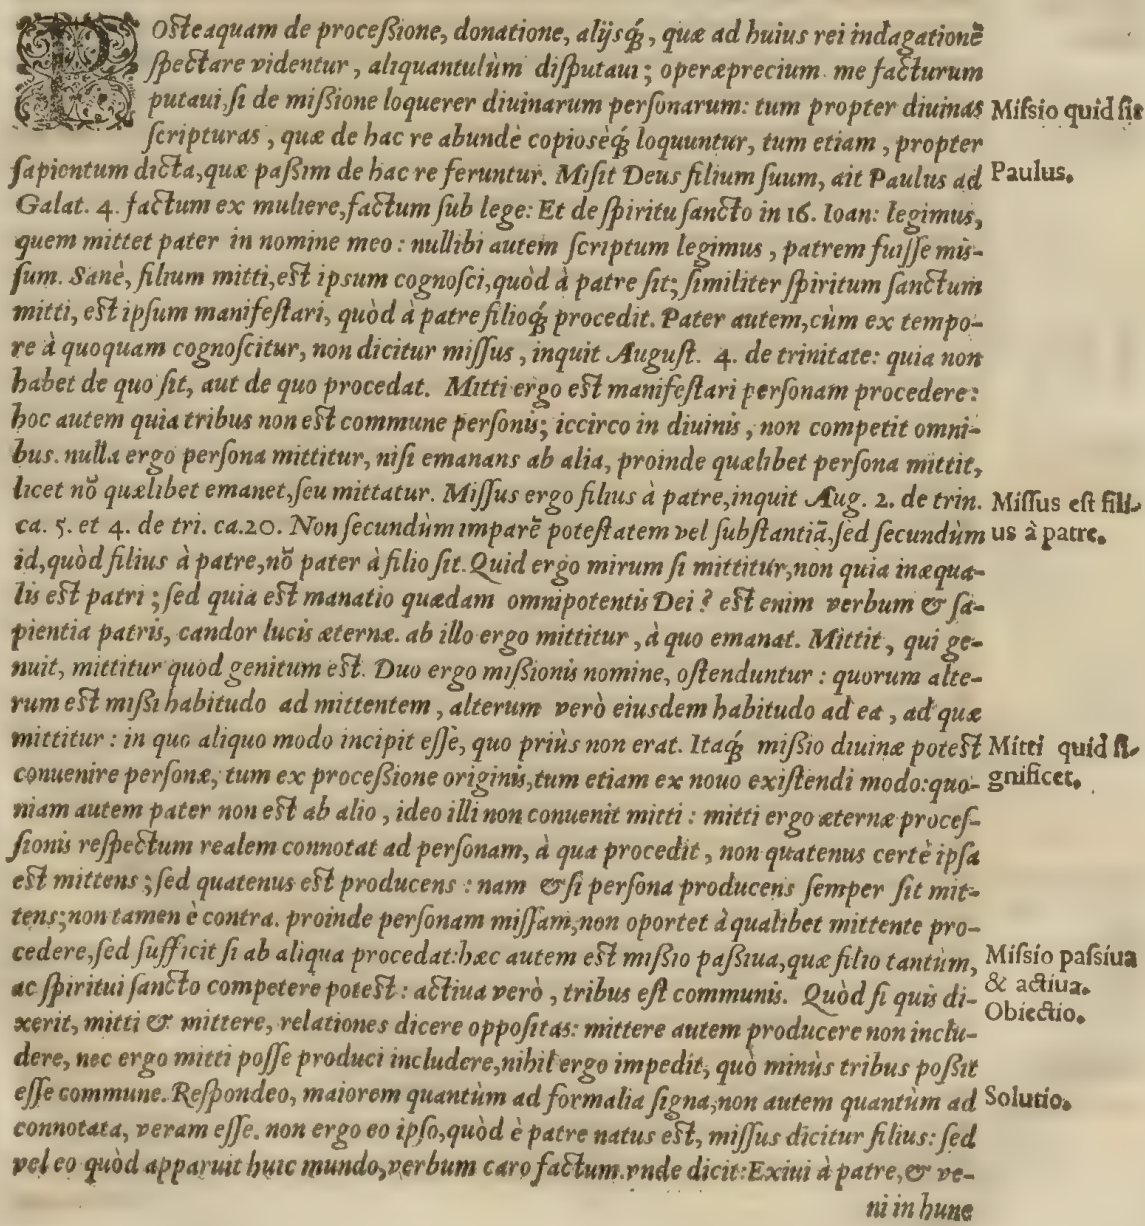 POsteaquam de proceßione, donatione, alijsq́;, quæ ad huius rei indagationē
ſpectare videntur, aliquantulùm diſputaui; operæprecium me facturum
putaui, ſi de mißione loquerer diuinarum perſonarum: tum propter diuinas
Miſsio quid ſit
ſcripturas, quæ de hac re abundè copioſèq́; loquuntur, tum etiam, propter
ſapientum dicta, quæ paßim de hac re feruntur. Miſit Deus filium ſuum, ait Paulus ad
Paulus.
Galat. 4. factum ex muliere, factum ſub lege: Et de ſpiritu ſancto in 16. Ioan: legimus,
quem mittet pater in nomine meo: nullibi autem ſcriptum legimus, patrem fuiſſe miſ-
ſum. Sanè, filium mitti, eſt ipsum cognoſci, quòd à patre ſit; ſimiliter ſpiritum ſanctum
mitti, eſt ipſum manifeſtari, quòd à patre filioq́; procedit. Pater autem, cùm ex tempo-
re à quoquam cognoſcitur, non dicitur miſſus, inquit Auguſt. 4. de trinitate: quia non
habet de quo ſit, aut de quo procedat. Mitti ergo eſt manifeſtari perſonam procedere:
hoc autem quia tribus non eſt commune perſonis; iccirco in diuinis, non competit omni-
bus. nulla ergo perſona mittitur, niſi emanans ab alia, proinde quælibet perſona mittit,
licet nō quælibet emanet, ſeu mittatur. Miſſus ergo filius à patre, inquit Aug. 2. de trin.
Miſſus eſt fili-
ca. 5. et 4. de tri. ca.20. Non ſecundùm imparē poteſtatem vel ſubſtantiā, ſed ſecundùm
us à patre.
id, quòd filius à patre, nō pater à filio ſit. Quid ergo mirum ſi mittitur, non quia inæqua-
lis eſt patri; ſed quia eſt manatio quædam omnipotentis Dei? eſt enim verbum & ſa-
pientia patris, candor lucis æternæ. ab illo ergo mittitur, à quo emanat. Mittit, qui ge-
nuit, mittitur quod genitum eſt. Duo ergo mißionis nomine, oſtenduntur: quorum alte-
rum eſt mißi habitudo ad mittentem, alterum verò eiusdem habitudo ad ea, ad quæ
mittitur: in quo aliquo modo incipit eſſe, quo priùs non erat. Itaq́; mißio diuinæ poteſt
Mitti quid ſi-
conuenire perſonæ, tum ex proceßione originis, tum etiam ex nouo exiſtendi modo: quo-
gnificet.
niam autem pater non eſt ab alio, ideo illi non conuenit mitti: mitti ergo æternæ proceſ-
ſionis reſpectum realem connotat ad perſonam, à qua procedit, non quatenus certè ipſa
eſt mittens; ſed quatenus eſt producens: nam & ſi perſona producens ſemper ſit mit-
tens; non tamen è contra. proinde perſonam miſſam, non oportet à qualibet mittente pro-
cedere, ſed ſufficit ſi ab aliqua procedat: hæc autem eſt mißio paßiua, quæ filio tantùm,
Miſsio paſsiua
ac ſpiritui ſancto competere poteſt: actiua verò, tribus eſt communis. Quòd ſi quis di-
& actiua.
Obiectio.
xerit, mitti & mittere, relationes dicere oppoſitas: mittere autem producere non inclu-
dere, nec ergo mitti poſſe produci includere, nihil ergo impedit, quò minùs tribus poßit
eſſe commune. Reſpondeo, maiorem quantùm ad formalia ſigna, non autem quantùm ad
Solutio.
connotata, veram eſſe. non ergo eo ipſo, quòd è patre natus eſt, miſſus dicitur filius: ſed
vel eo quòd apparuit huic mundo, verbum caro factum. vnde dicit: Exiui à patre, & ve-
ni in hunc